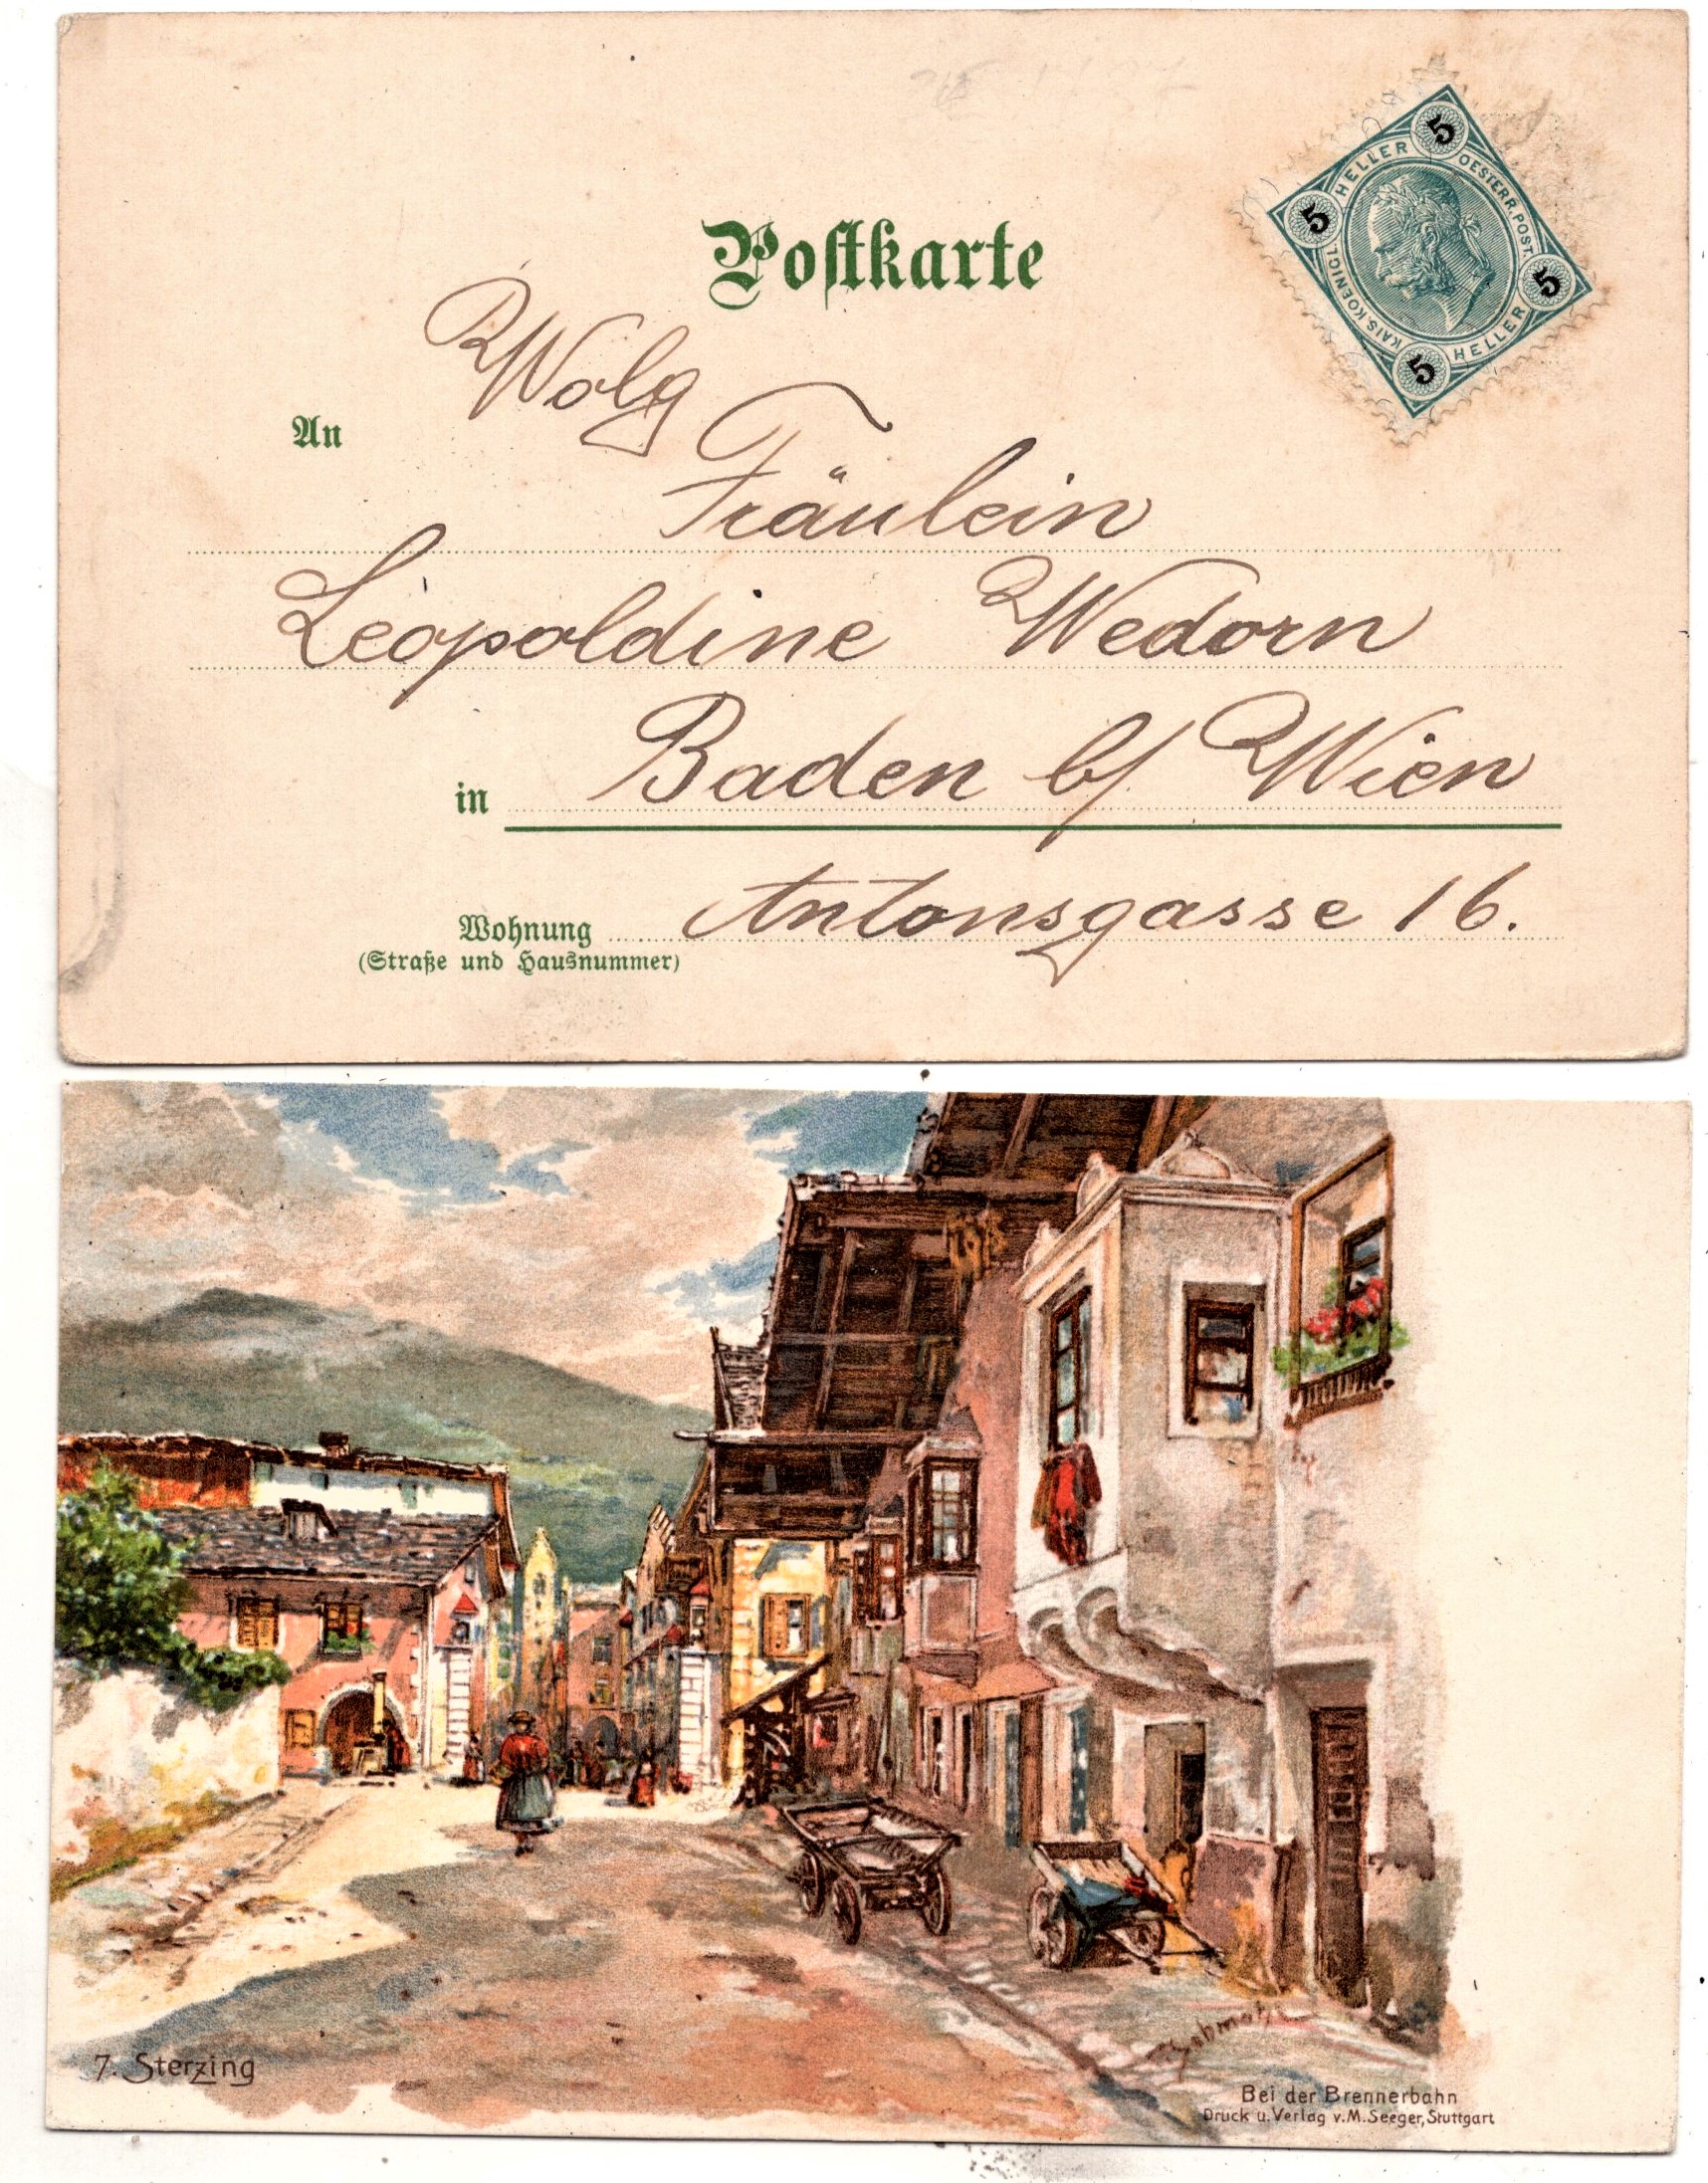 Postkarte
5
HELLER
OESTERR. POST.
5
5
KAIS. KOENIGL.
HELLER
5
Wolg
An
Fräulein
Leopoldine Wedorn
in Baden b/ Wien
Wohnung Antonsgasse 16.
(Straße und Hausnummer)
7. Sterzing
Bei der Brennerbahn
Druck u. Verlag v. M. Seeger, Stuttgart